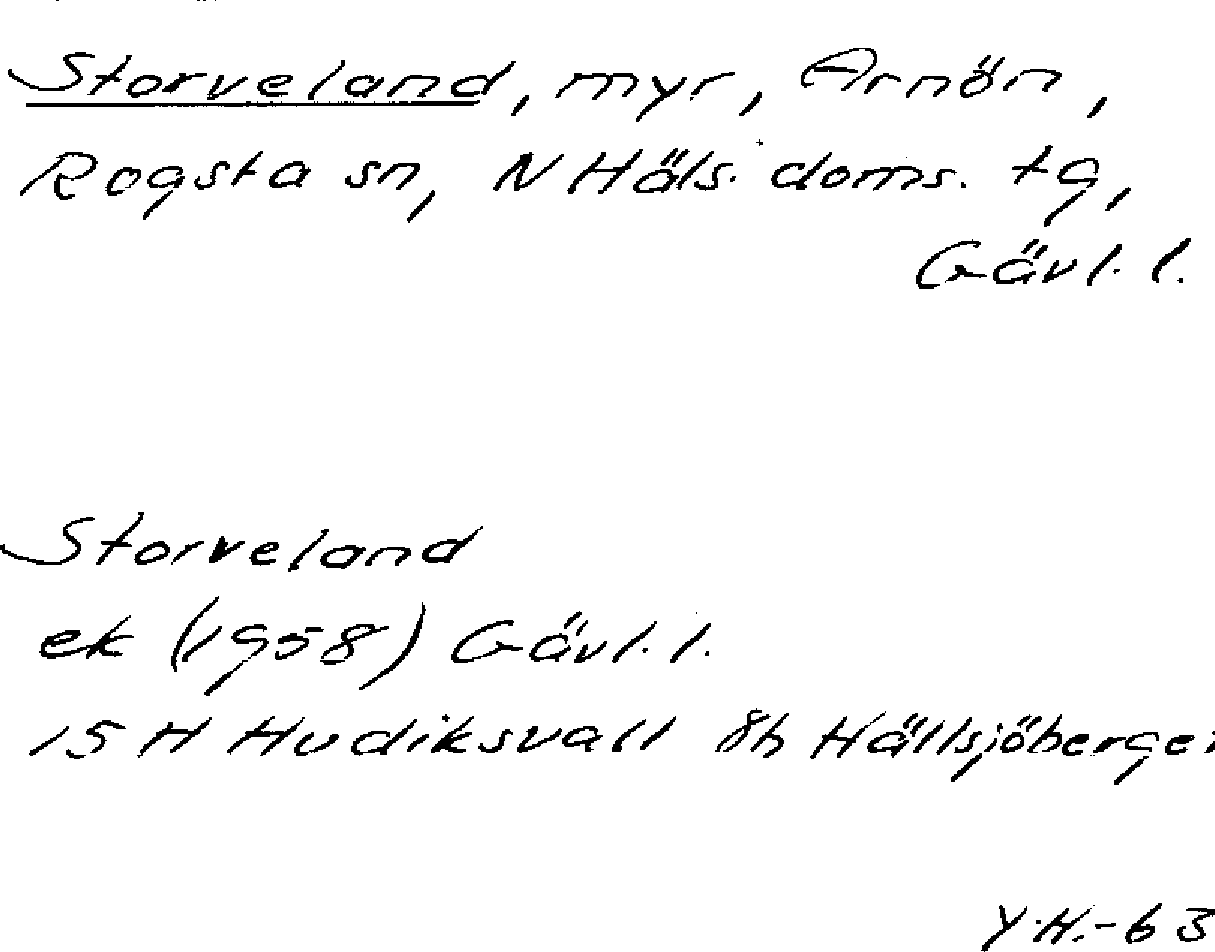 Storveland, myr, Arnön,
Rogsta sn, N Häls. doms. tg,
Gävl. l.
Storveland
ek (1958) Gävl. l.
15 H Hudiksvall 8h Hällsjöberget
Y.H.-63